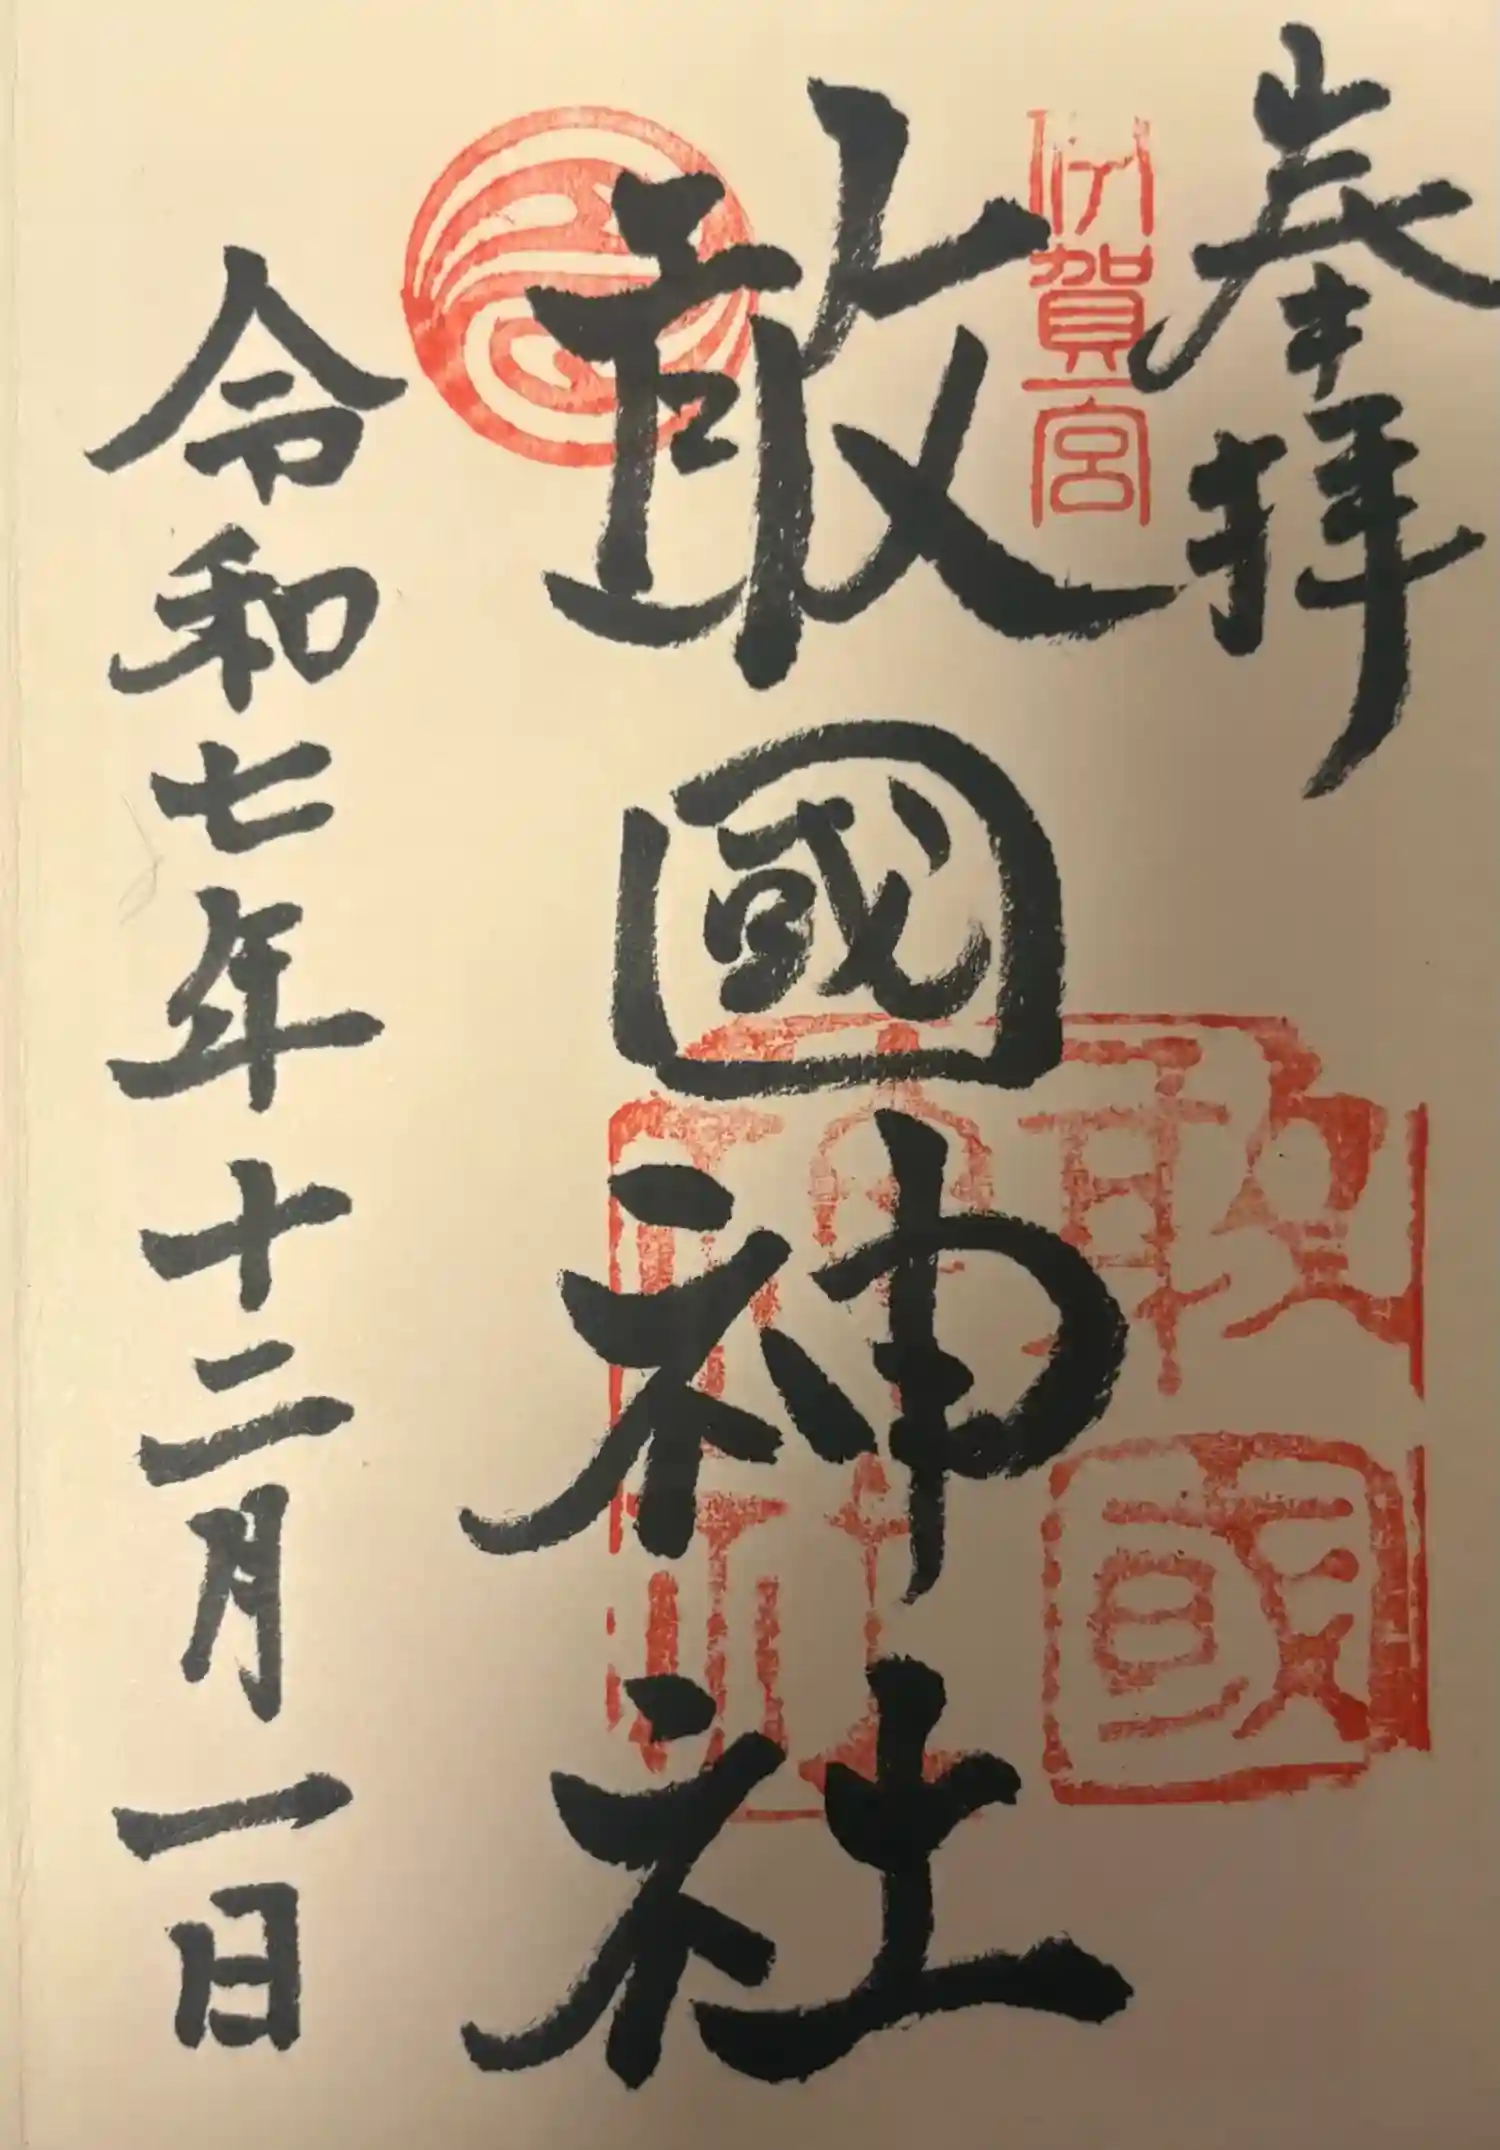 奉拝
伊賀一宮
敢國神社
敢國神社
令和七年十二月一日